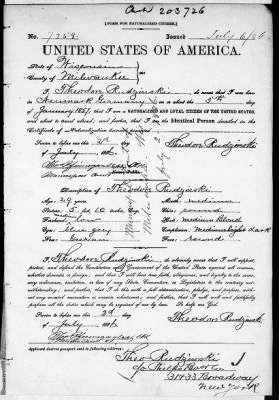 [FORM FOR NATURALIZED CITIZEN.]
No. Issued July 6/86
UNITED STATES OF AMERICA.
State of Wisconsin
County of Milwaukee
I, Theodor Rudzinski, do swear that I was born
in Germany, on or about the 5th day
of January 1857, that I am a NATURALIZED AND LOYAL CITIZEN OF THE UNITED STATES,
and about to travel abroad; and further, that I am the Identical Person described in the
Certificate of Naturalization
Sworn to before me this
of July 1886 Theodor Rudzinski
Description of Theodor Rudzinski
Age: 29 years Mouth: medium
Stature: 5 feet, 10 inches, Eng. Chin: round
Forehead: low Hair: medium blond
Eyes: blue gray Complexion:
Nose: Grecian Face: round
I, Theodor Rudzinski, do solemnly swear that I will support,
protect, and defend the Constitution and Government of the United States against all enemies,
whether domestic or foreign; and that I will bear true faith, allegiance, and loyalty to the same,
any ordinance, resolution, or law of any State, Convention, or Legislature to the contrary notwithstanding;
and further, that I do this with a full determination, pledge, and purpose, without
any mental reservation or evasion whatsoever; and further, that I will well and faithfully
perform all the duties which may be required of me by law. So help me God.
Sworn to before me this
day
of July 1886 Theodor Rudzinski
Applicant desires passport sent to following address:
Theo Rudzinski
Broadway
New York